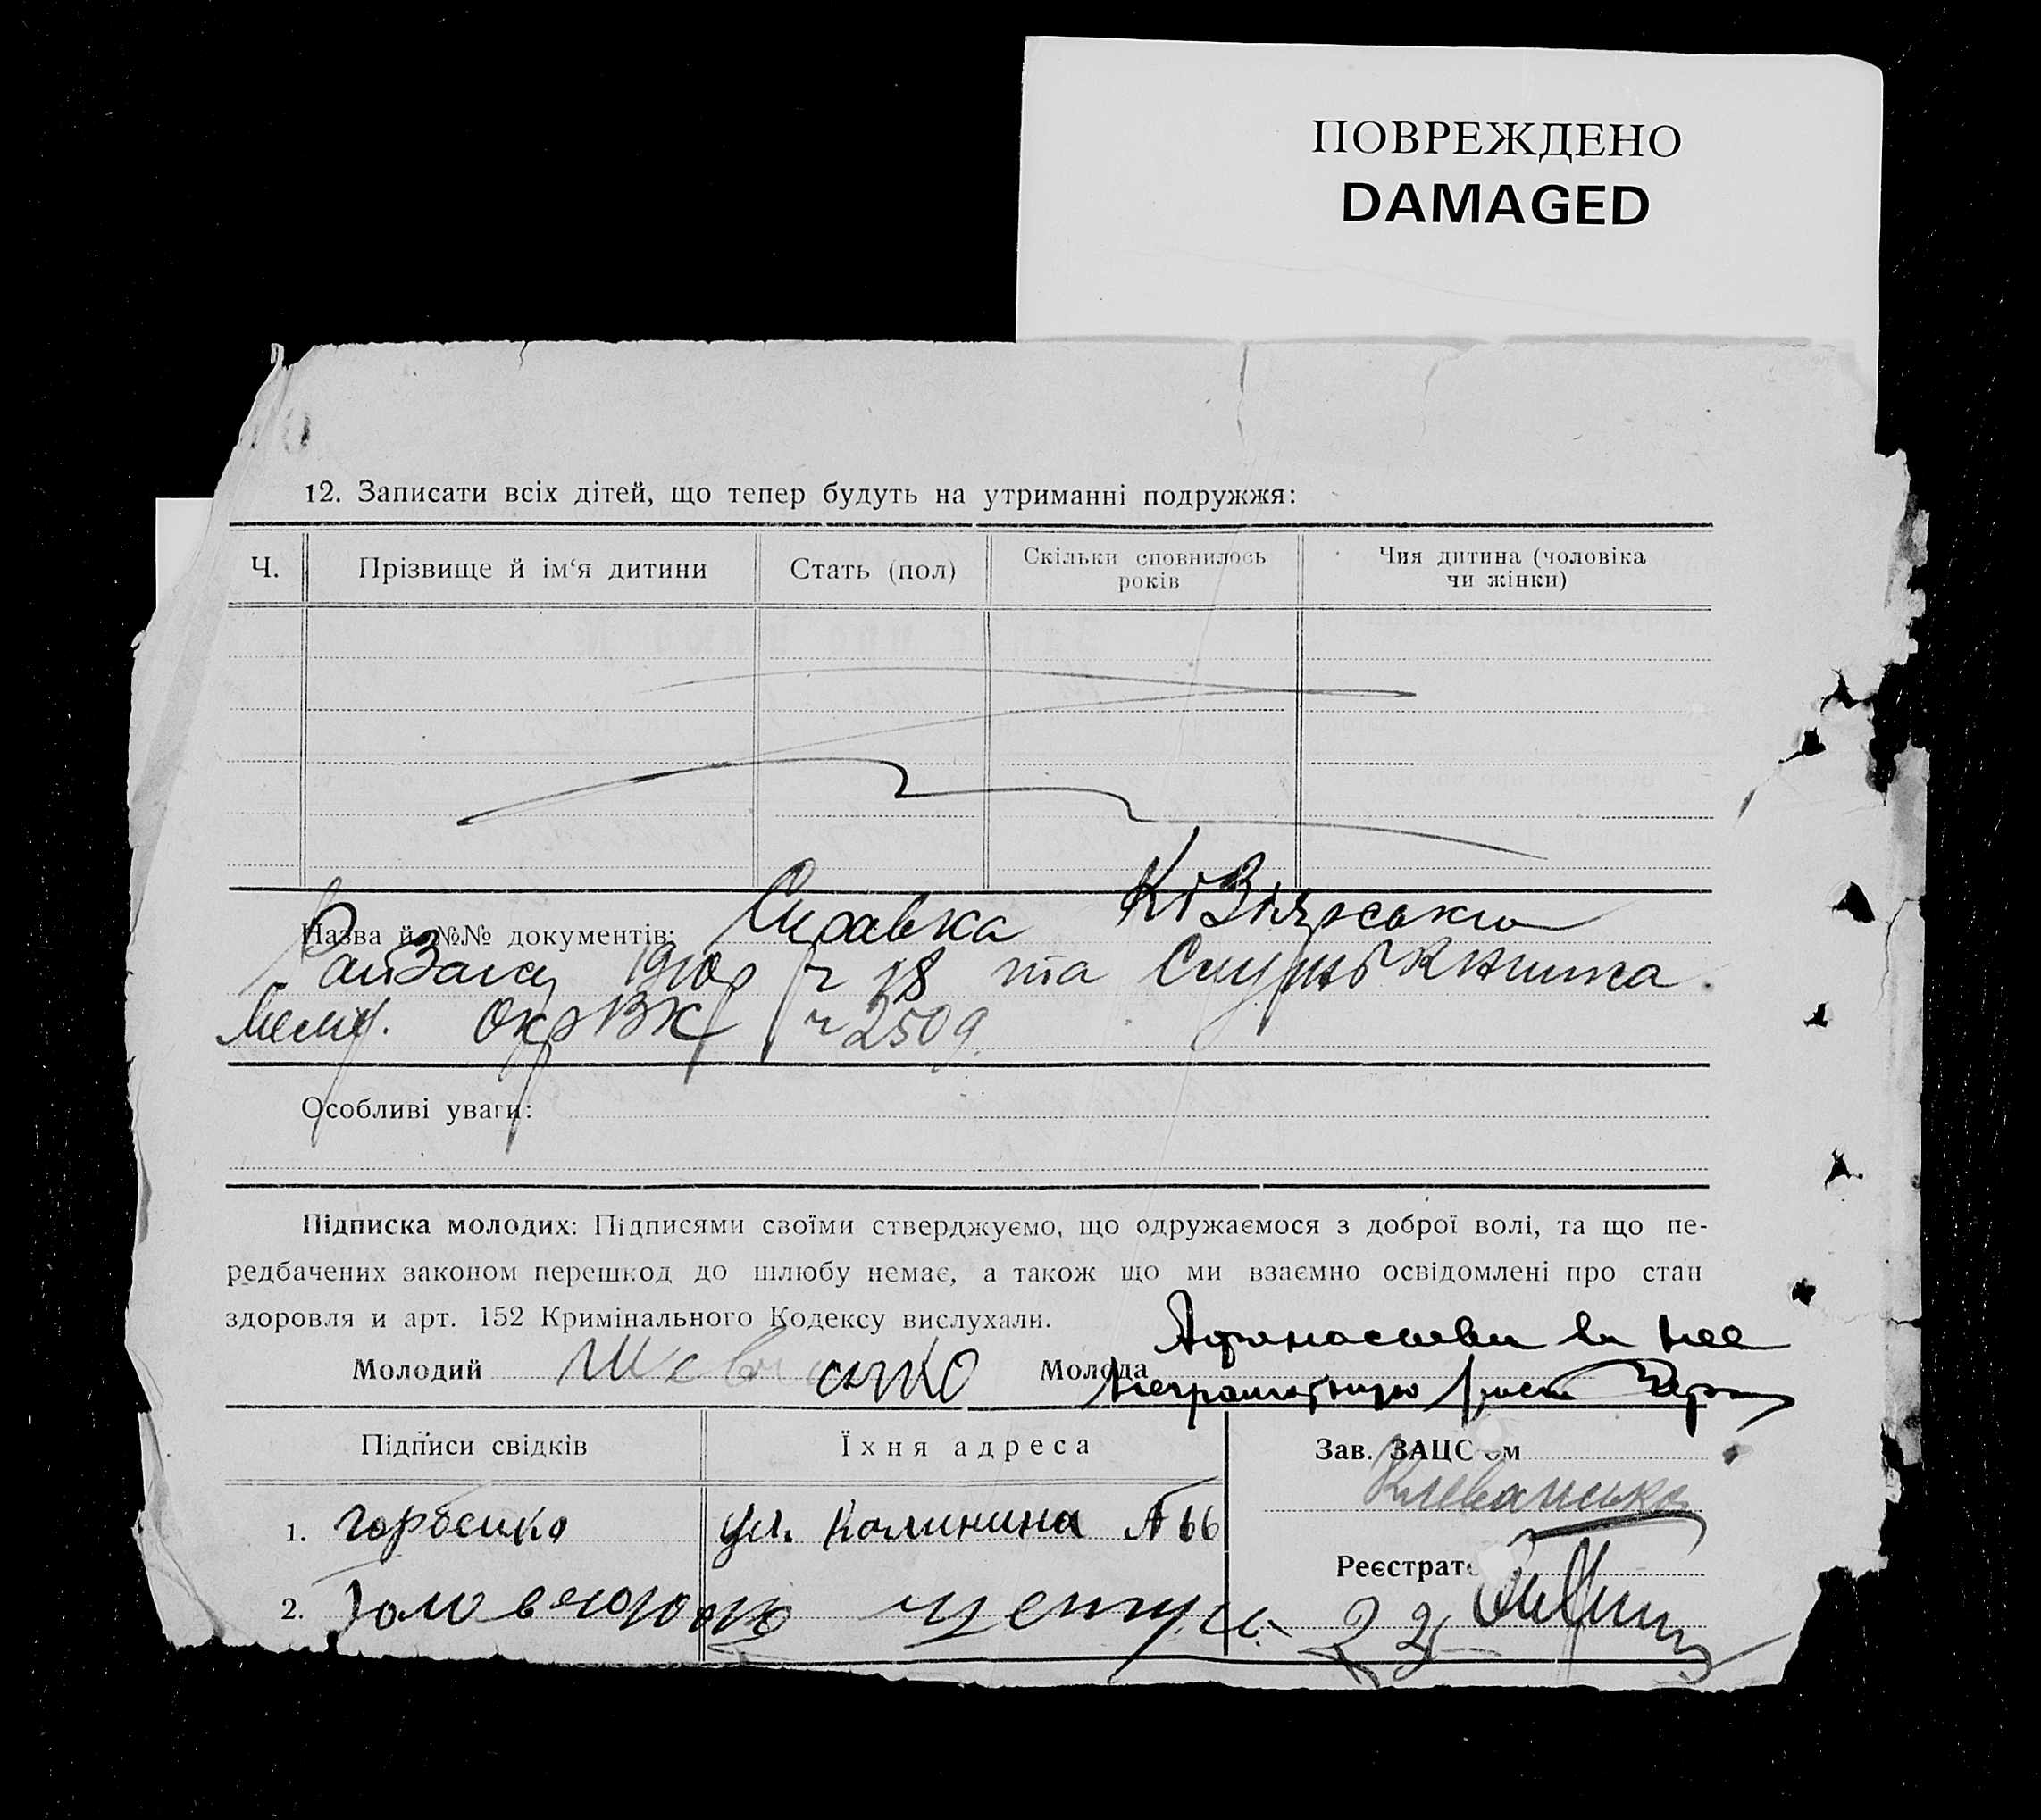 ПОВРЕЖДЕНО
DAMAGED
12. Записати всіх дітей, що тепер будуть на утриманні подружжя:
Ч. Прізвище й ім‘я дитини Стать (пол) Скільки сповнилось років Чия дитина (чоловіка чи жінки)
Назва й №№ документів: Справка
та
ОкрВК 2509
Особливі уваги:
Підписка молодих: Підписями своїми стверджуємо, що одружаємося з доброї волі, та що пе-
редбачених законом перешкод до шлюбу немає, а також що ми взаємно освідомлені про стан
здоровля и арт. 152 Кримінального Кодексу вислухали.
Молодий Шевченко Молода за нее
неграмотную
Підписи свідків Їхня адреса Зав. ЗАЦС‘ом
1. Горбенко ул. Калинина № 66
Реєстрато
2. 22